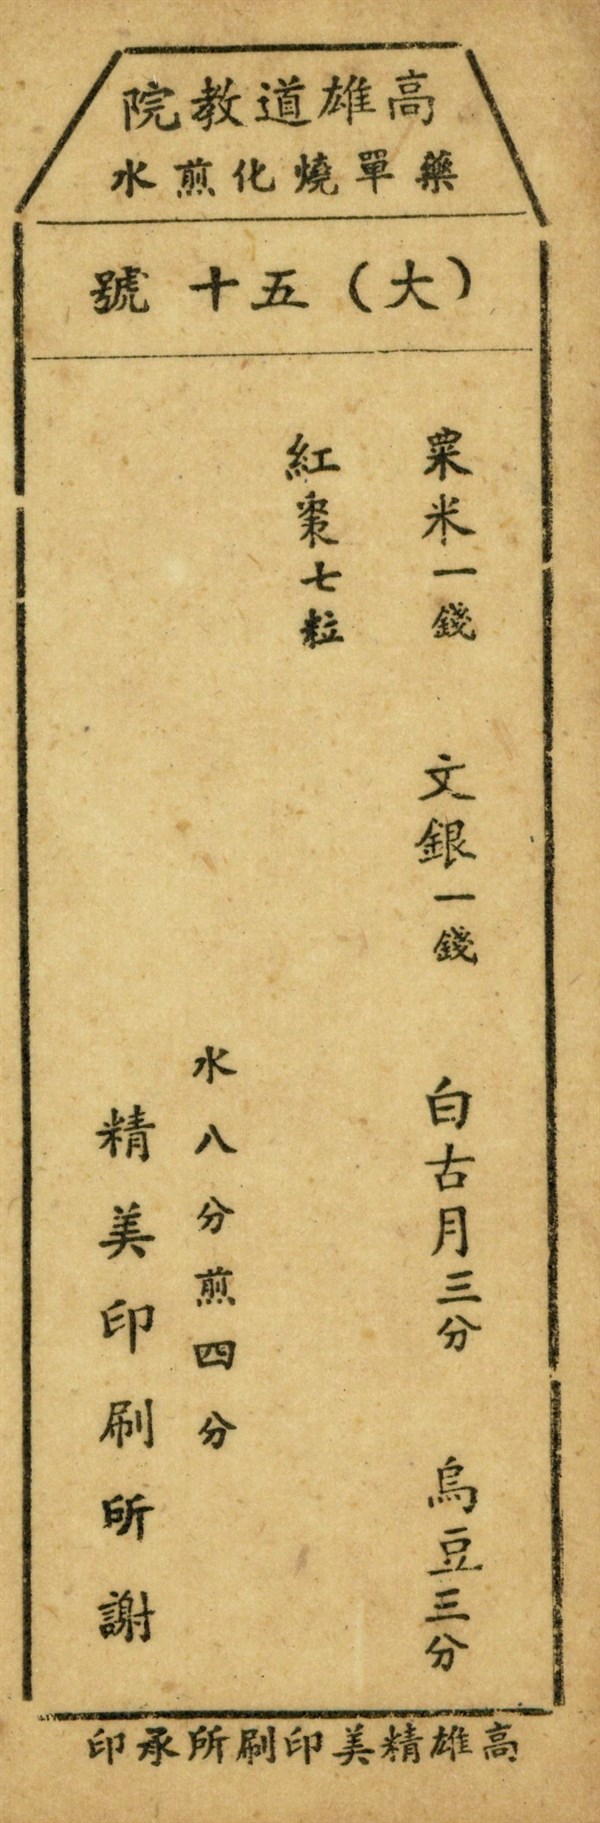 高雄道教院
藥單燒化煎水
(大)五十號
粟米一錢 文銀一錢 白古月三分 烏豆三分
紅棗七粒
水八分煎四分
精美印刷所謝
高雄精美印刷所承印